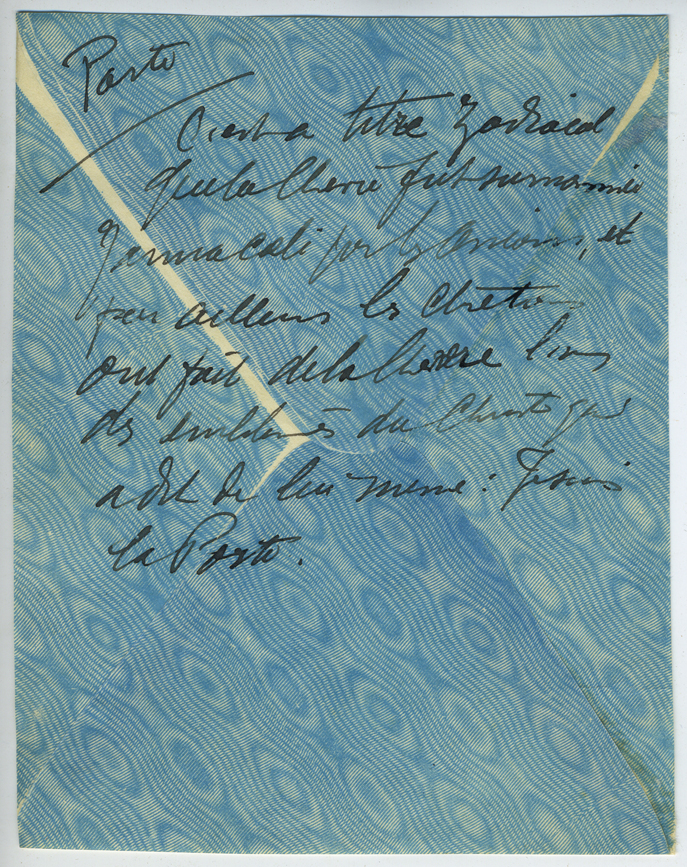 Porte
C'est à titre Zodiacal
que la Chèvre fut surnommée
Januacaeli par les Anciens, et
par ailleurs les Chrétiens
ont fait de la Chèvre l'un
des emblèmes du Christ qui
a dit de lui même : Je suis
la Porte.